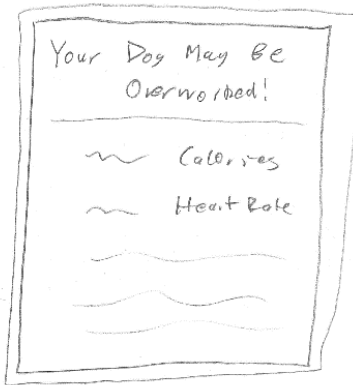 Your Dog May Be
Overworked!
Calories
Heart Rate